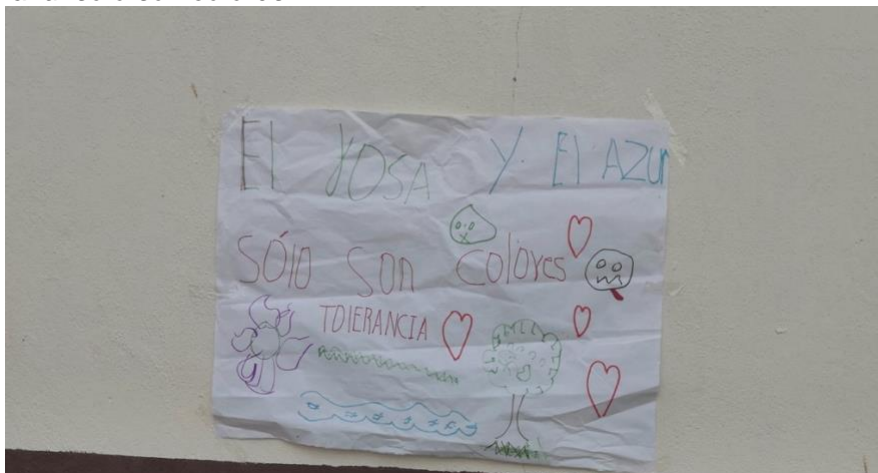 El rosa y El AZUl
SÓlO SON COlOres
TOlERANCIA